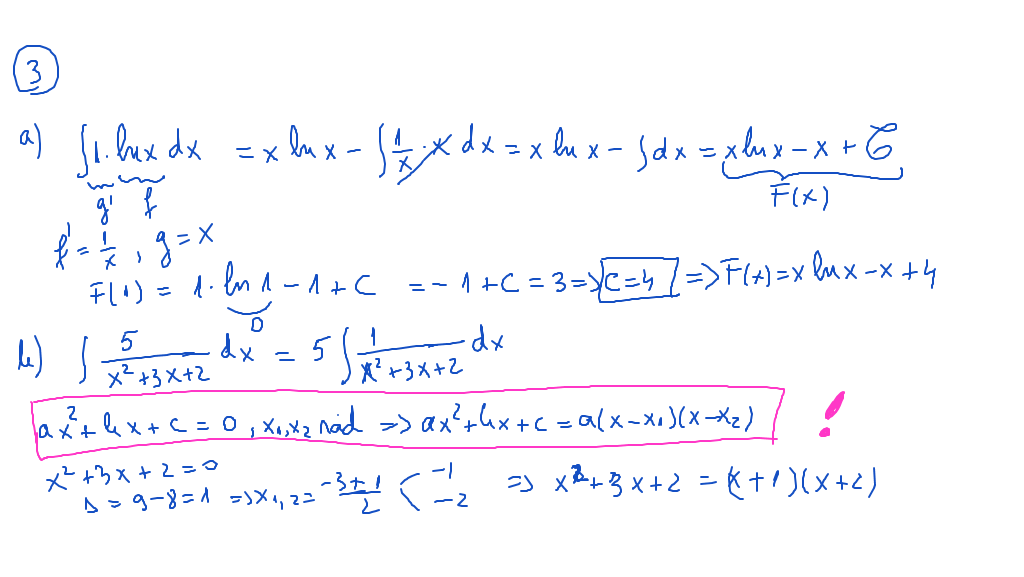 3
a) ∫1·ln x dx = x ln x − ∫ 1/x · x dx = x ln x − ∫dx = x ln x − x + C
g' f F(x)
f' = 1/x , g = x
F(1) = 1· ln 1 − 1 + C = −1 + C = 3 => C=4 => F(x) = x ln x − x + 4
0
b) ∫ 5/(x²+3x+2) dx = 5 ∫ 1/(x²+3x+2) dx
ax² + bx + c = 0, x₁,x₂ răd => ax² + bx + c = a(x−x₁)(x−x₂) !
x² + 3x + 2 = 0
Δ = 9−8 = 1 => x₁,₂ = (−3±1)/2 < −1 −2 => x² + 3x + 2 = (x+1)(x+2)